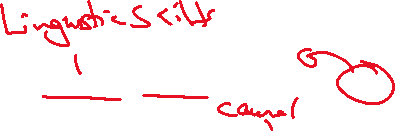 Linguistic Skills
causal